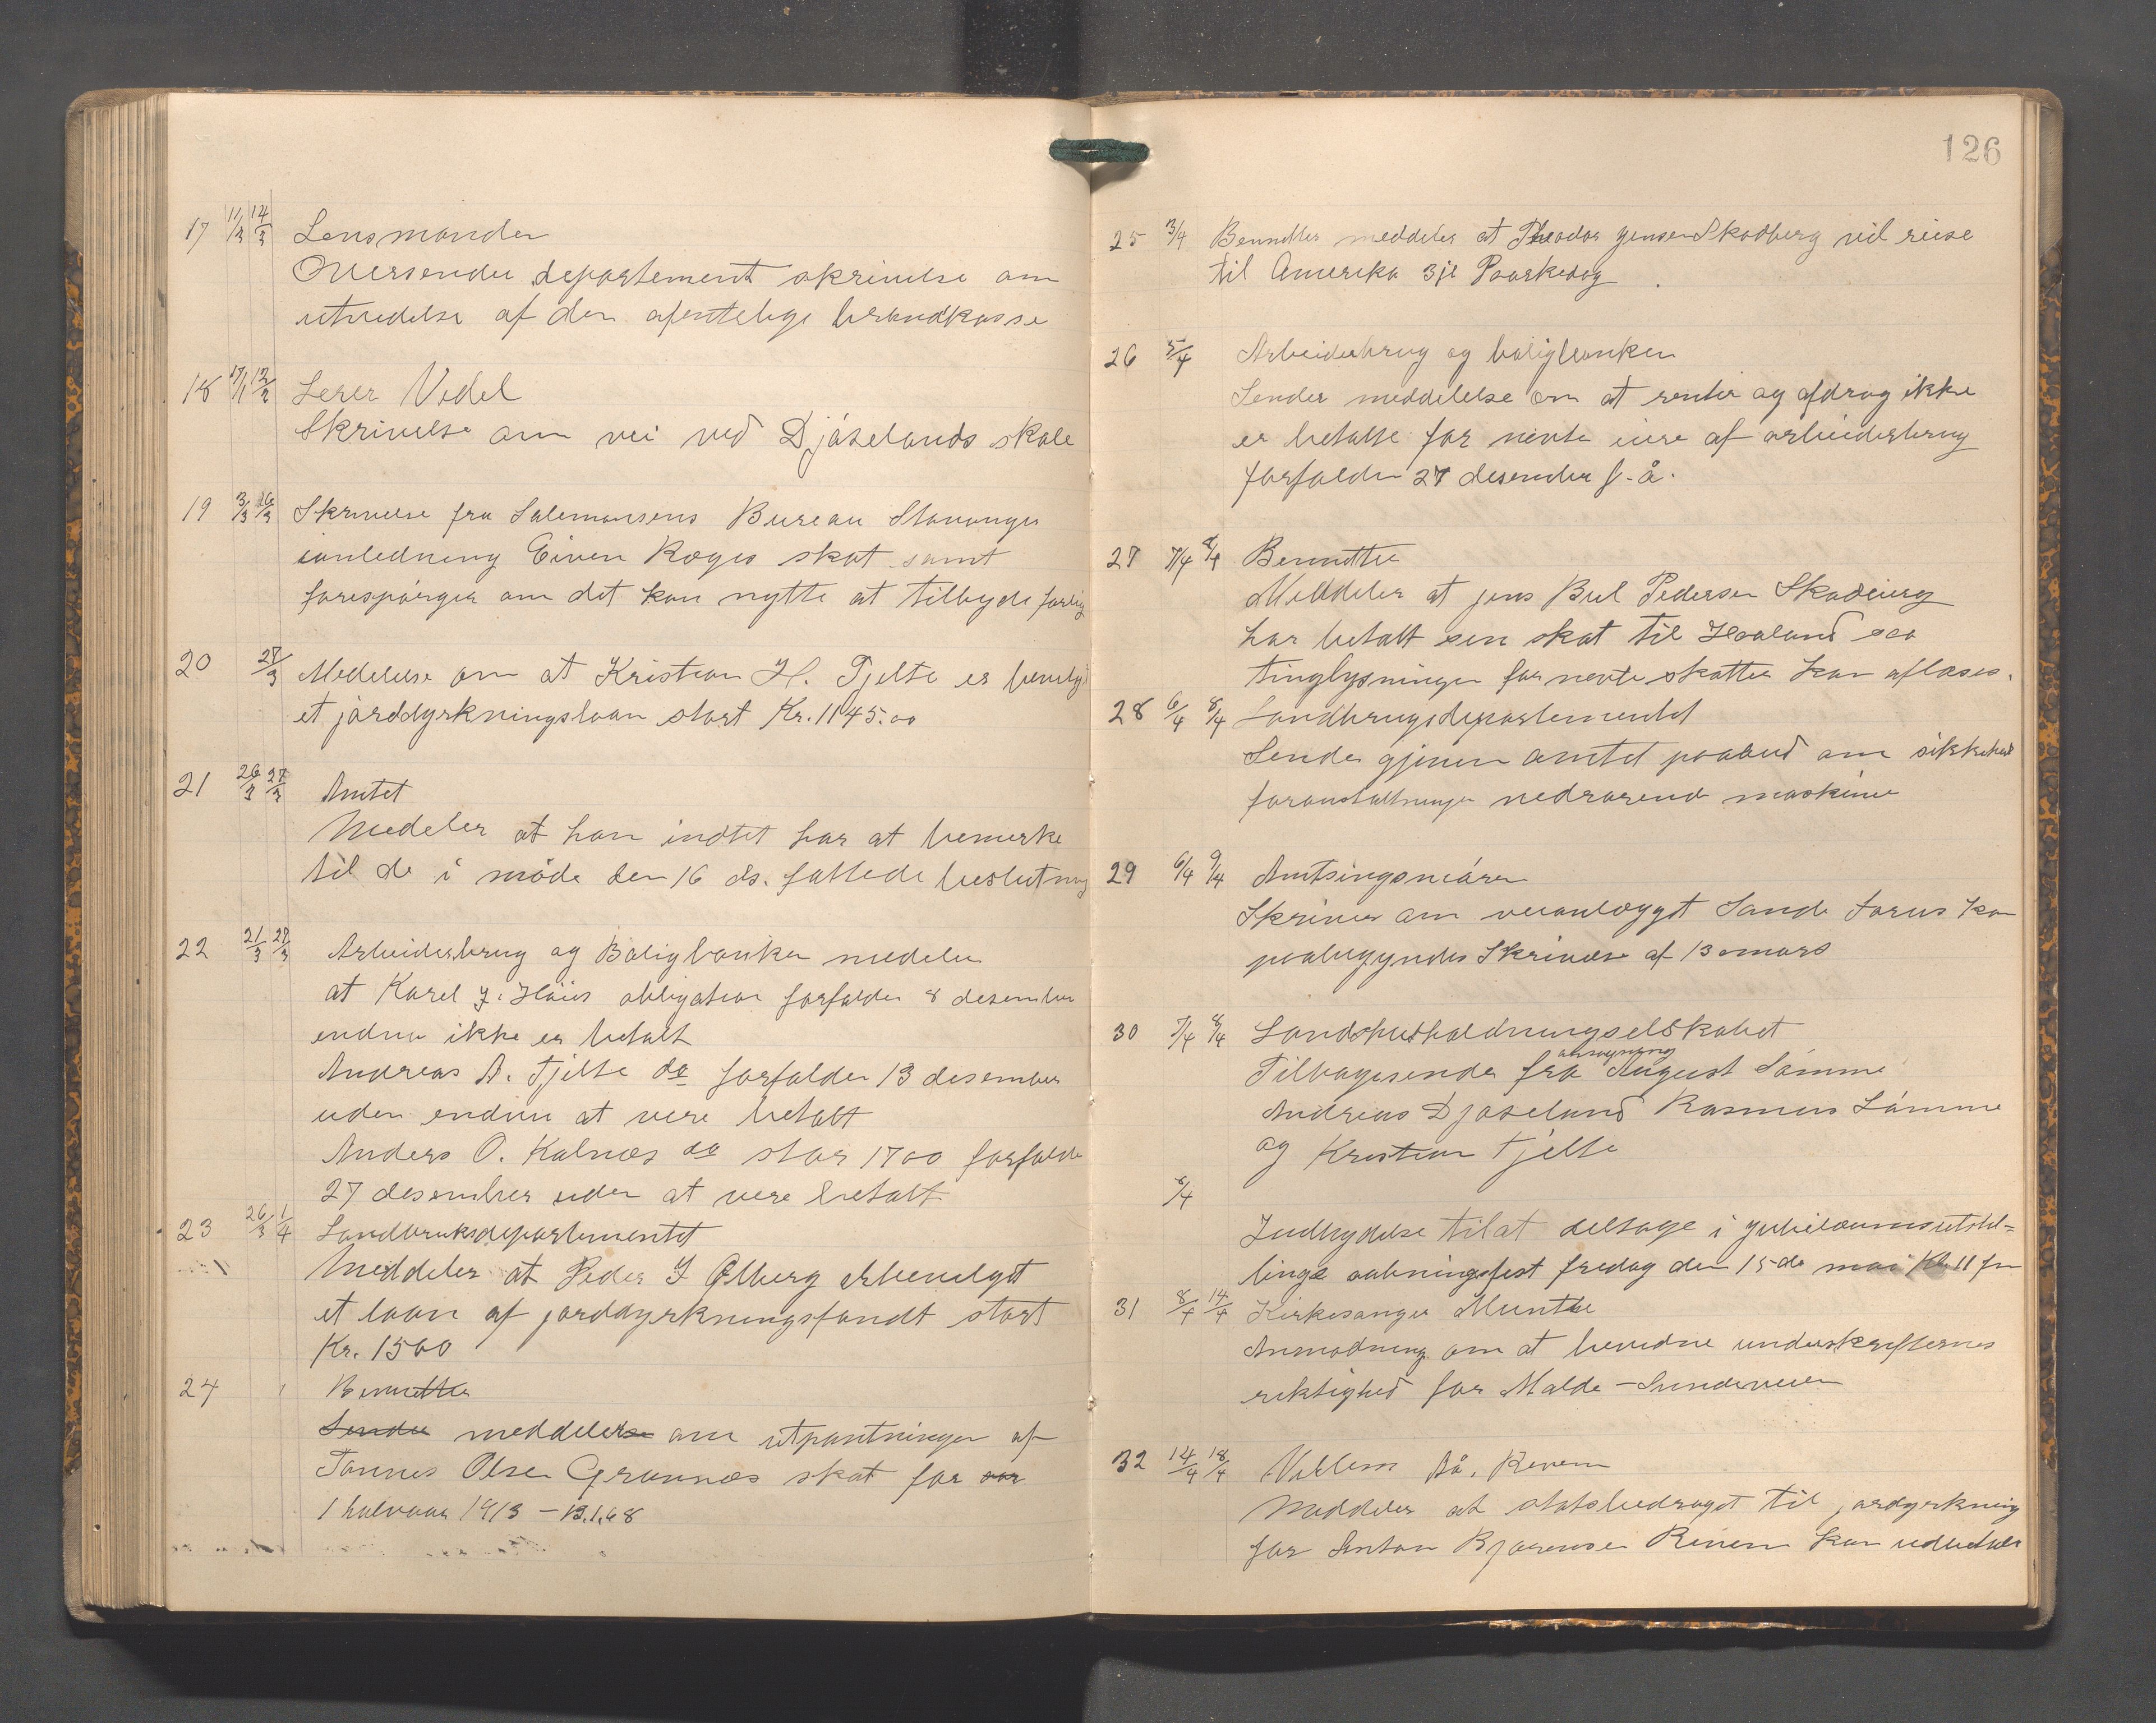 17 11/3 14/3 Lensmanden
Oversender departement skrivelse om
utredelse af den ofentelige brandkasse
18 17/1 12/2 Lerer Vedel
Skrivelse om vei ved Djåselands skole
19 3/3 26/3 Skrivelse fra Salomonsens Bureau Stavanger
ianledning Eiven Roges skat samt
forespörger om det kan nytte at tilbyde forlig
20 27/3 Medelelse om at Kristian H. Tjelte er bevilg
et jorddyrkningslaan stort Kr. 1145.00
21 26/3 27/3 Amtet
Medeler at han indtet har at bemerke
til de i möde den 16 ds. fattede beslutning
22 21/3 27/3 Arbeiderbrug og Boligbanken medeler
at Karel J. Höies obligation forfalden 8 desember
endnu ikke er betalt
Andreas A. Tjelte do forfalden 13 desember
uden endnu at vere betalt
Anders O. Kalnæs do stor 1700 forfalden
27 desember uden at vere betalt
23 26/3 1/4 Landbruksdepartementet
Meddeler at Peder J Ølberg er bevilget
et laan af jorddyrkningsfondt stort
Kr. 1500
24 Berndtter
Sender meddelelse om utpantninger af
Tønnes Olsen Grannes skat for
1 halvaar 1913 – 13.1.68
126
25 3/4 Berndtter meddeler at Theodor Jensen Skadberg vil reise
til Amerika 3je Paaskedag
26 5/4 Arbeiderbrug og boligbanken
Sender meddelelse om at renter og afdrag ikke
er betalte for nevte eiere af arbeiderbrug
forfalden 27 desember f. å.
27 7/4 8/4 Berndtter
Meddeler at jens Bul Pedersen Skadberg
har betalt sin skat til Haaland saa
tinglysningen for nevte skatter kan aflæses.
28 6/4 8/4 Landbrugsdepartementet
Sender gjenem amtet paabud om sikkerheds
foranstaltninger vedrørende maskiner
29 6/4 9/4 Amtsingeniören
Skriver om veianlægget Sande Forus kan
paabegyndes Skrivelse af 13 mars
30 7/4 8/4 Landshusholdningselskabet
ansøgning
Tilbagesender fra August Sömme
Andreas Djøseland Rasmus Sömme
og Kristian Tjelte
8/4
Indbydelse til at deltage i jubilæumsutstil=
lings aabningsfest fredag den 15 de mai Kl. 11 fm
31 8/4 14/4 Kirkesanger Munthe
Anmodning om at bevidne underskrifternes
riktighed for Malde – Sundeveien
32 14/4 18/4 Villem Aå. Reven
Meddeler at statsbidraget til jordyrkning
for Anton Bjørensen Reven kan udbetales